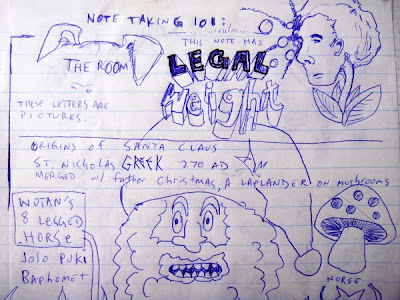 NOTE TAKING 101:
THIS NOTE HAS
LEGAL
weight
THE ROOM
THESE LETTERS ARE
PICTURES.
ORIGINS OF SANTA CLAUS
ST. NICHOLAS GREEK 270 AD
MERGED w/ father Christmas, A LAPLANDER ON MUSHROOMS
WOTAN'S
8 LEGGED
HORSE
JOLO PUKI
BAPHOMET
NORSE